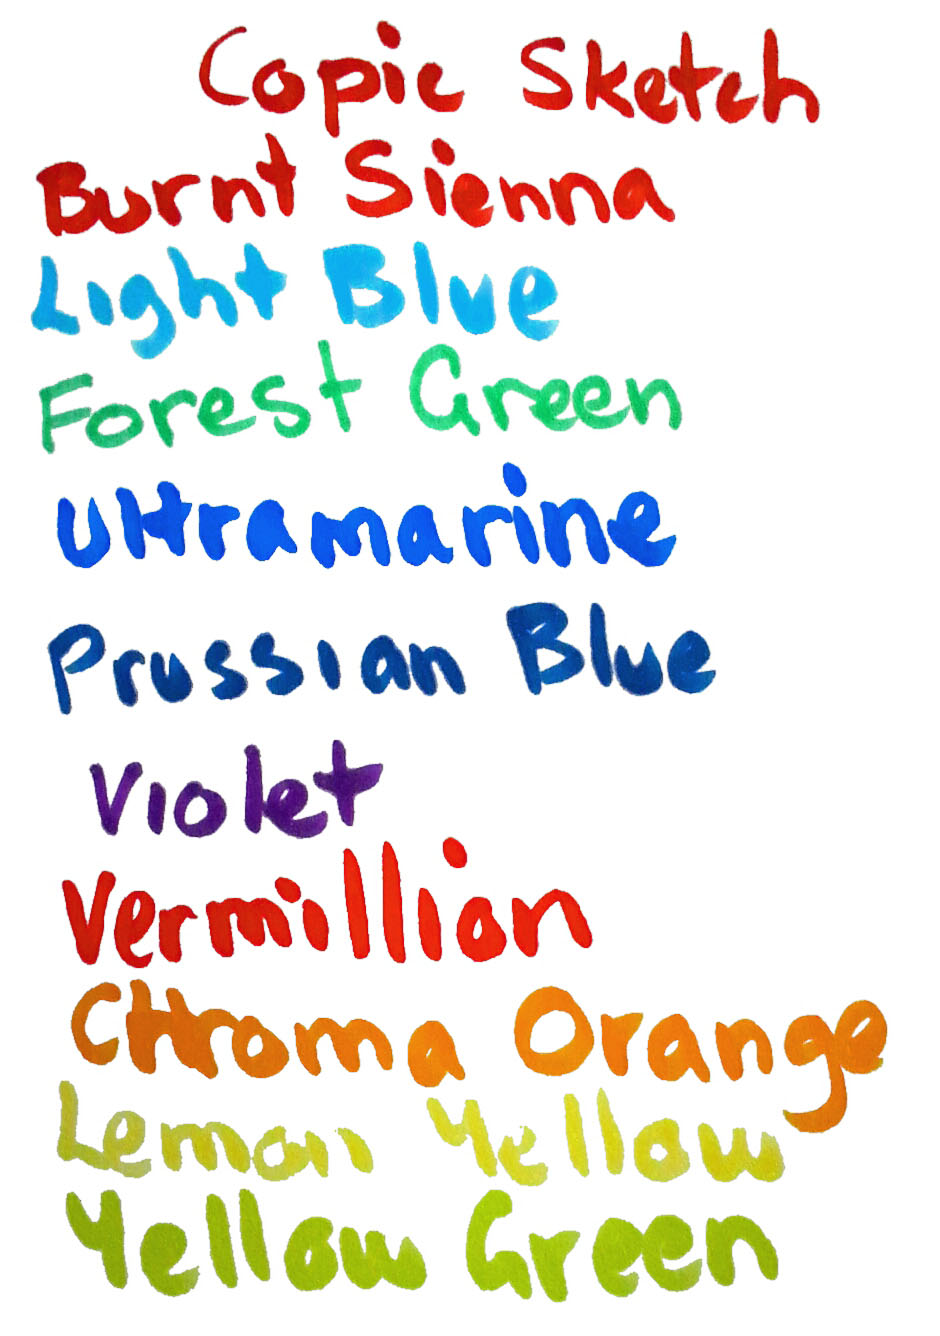 Copic Sketch
Burnt Sienna
Light Blue
Forest Green
Ultramarine
Prussian Blue
Violet
Vermillion
CHroma Orange
Lemon Yellow
Yellow Green